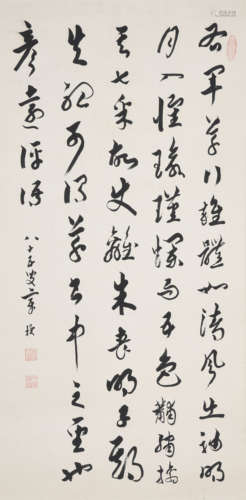 右軍草行雜體如清風出袖明
月入懷瑜瑾爛而五色黼繡摛
其七采故使離朱喪明子期
失聽可謂草書中之聖也
彥 評語
八十五叟章梫